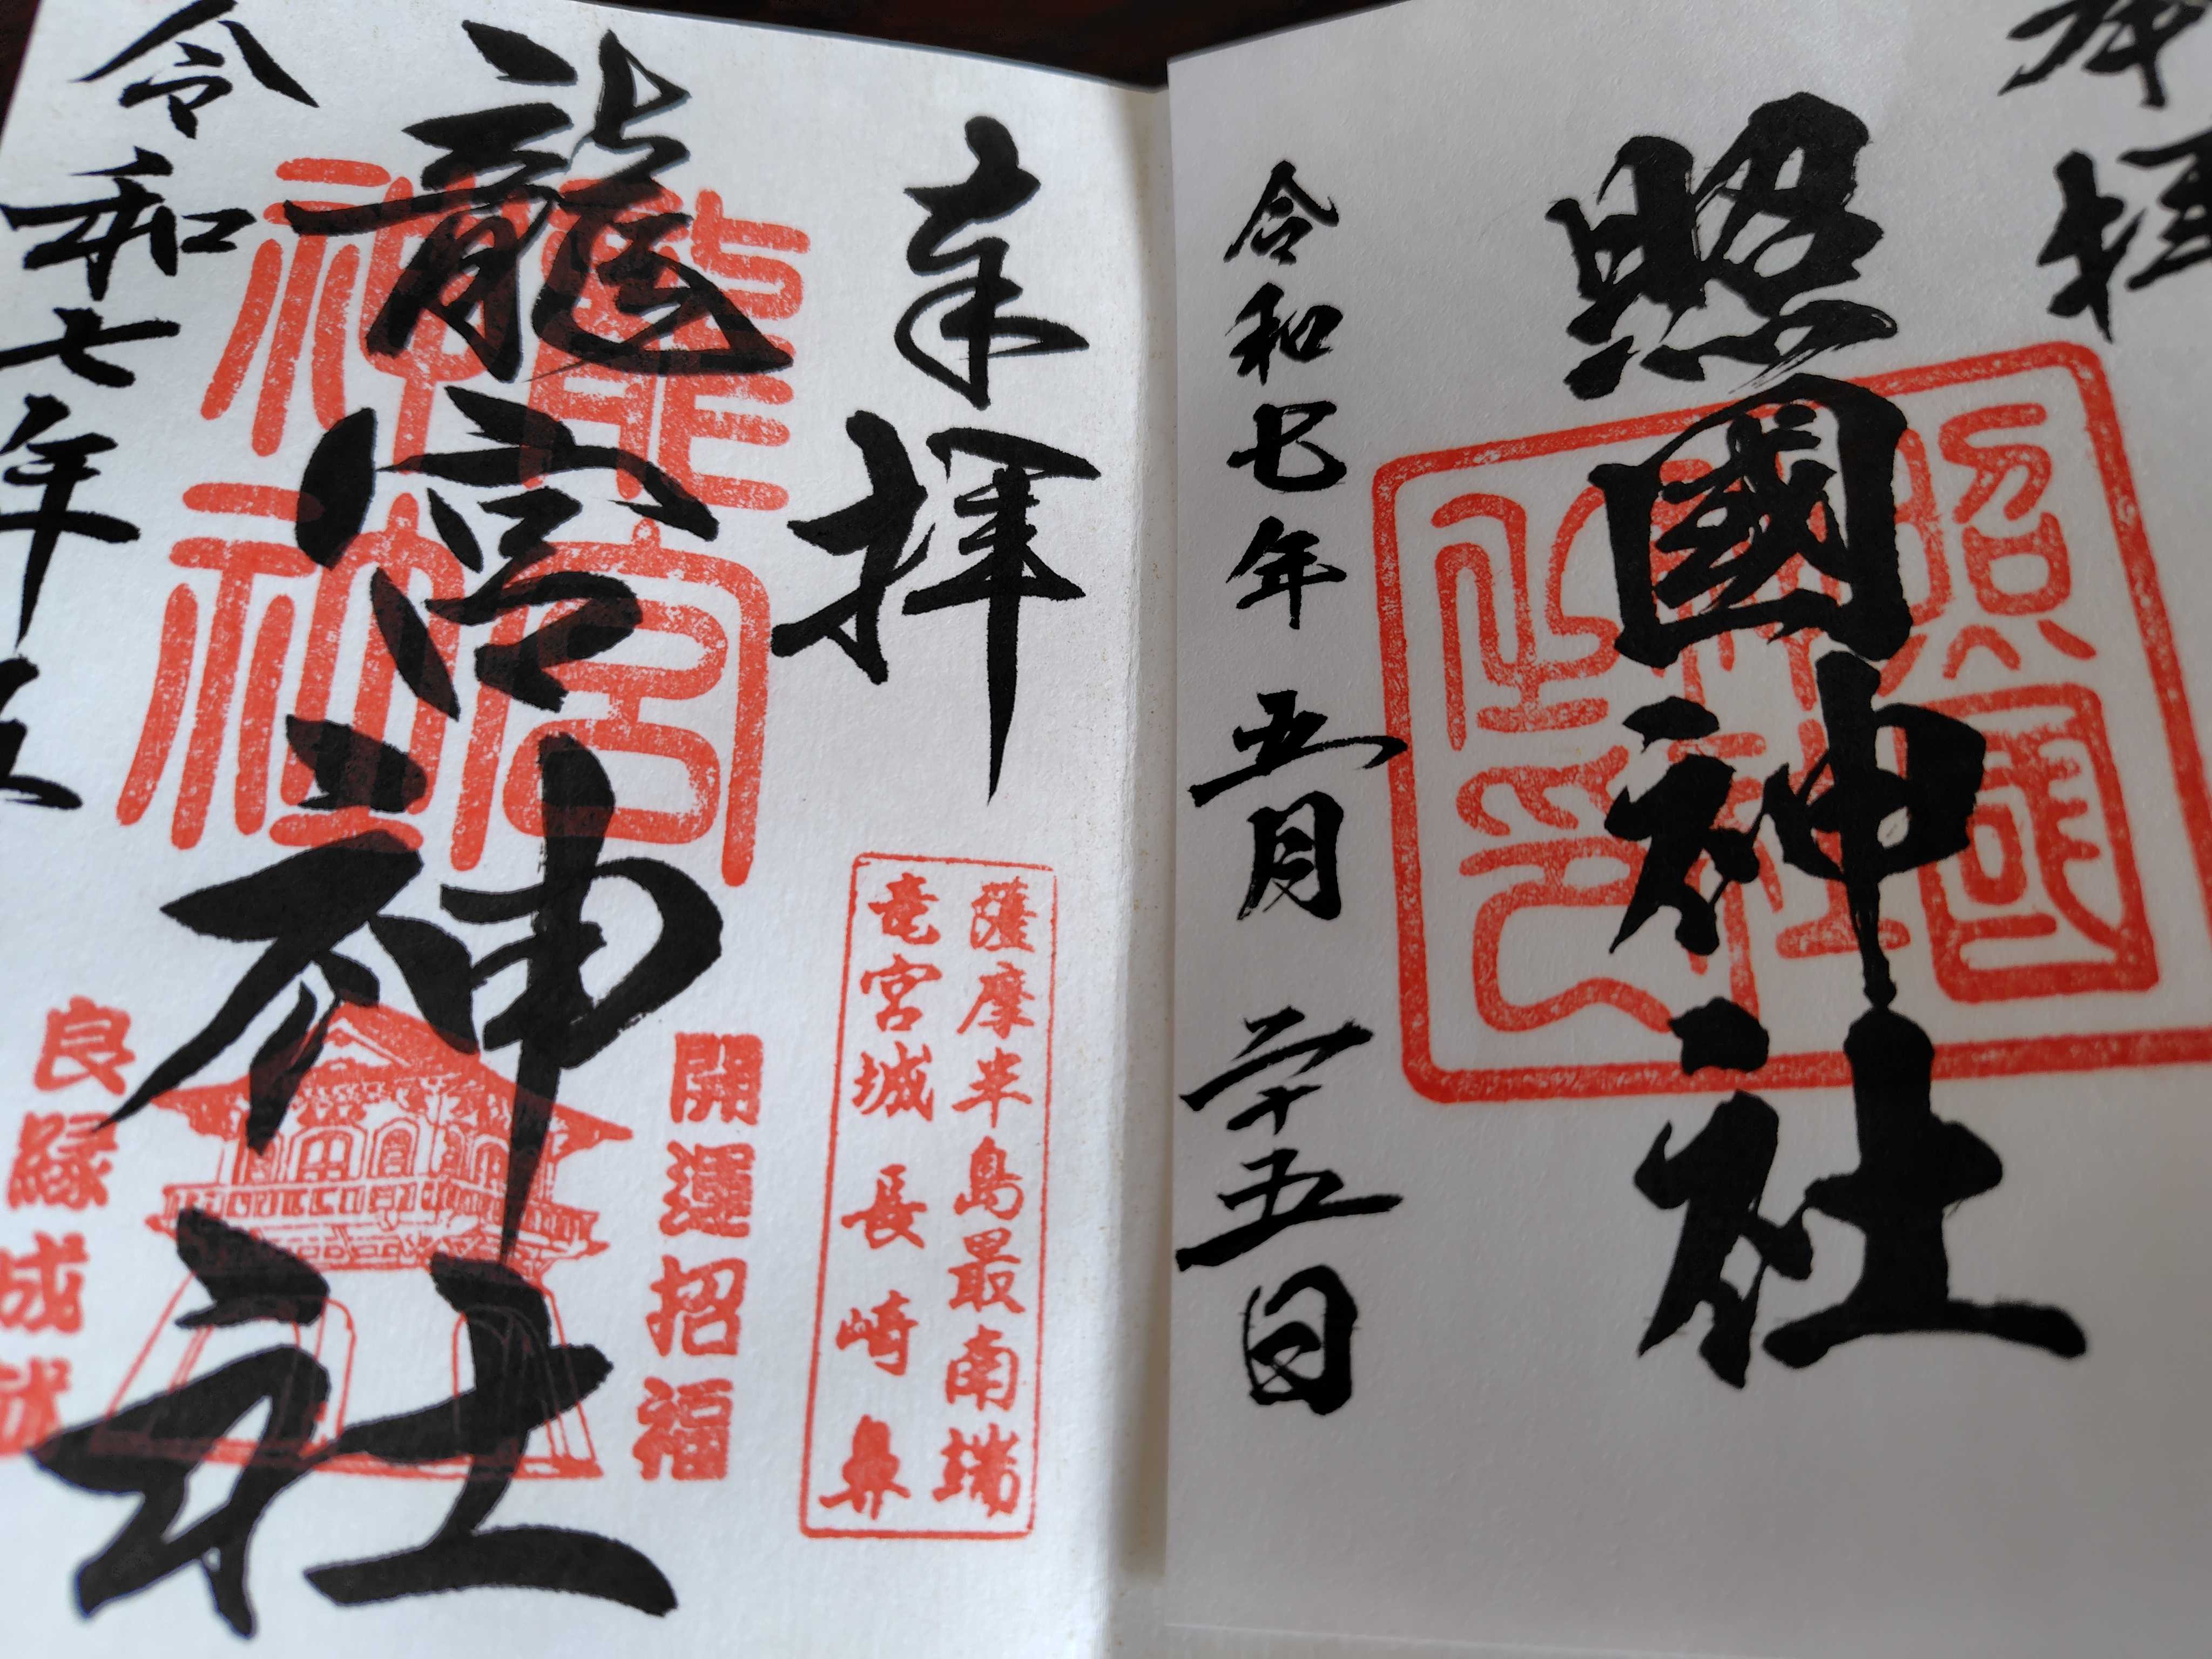 奉拝
照國神社
令和七年 五月 二十五日
照國
神社
之印
奉拝
薩摩半島最南端
竜宮城 長崎鼻
龍宮神社
龍宮
神社
開運招福
良縁成就
令和七年五